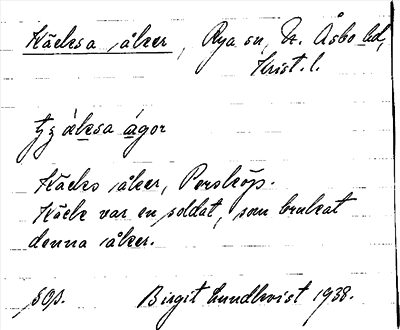 Käcksa åker, Rya sn, N. Åsbo hd,
Krist. l.
ɛksa ågor
Käcks åker, Perstorp.
Käck var en soldat, som brukat
denna åker.
Birgit Lundkvist 1938.